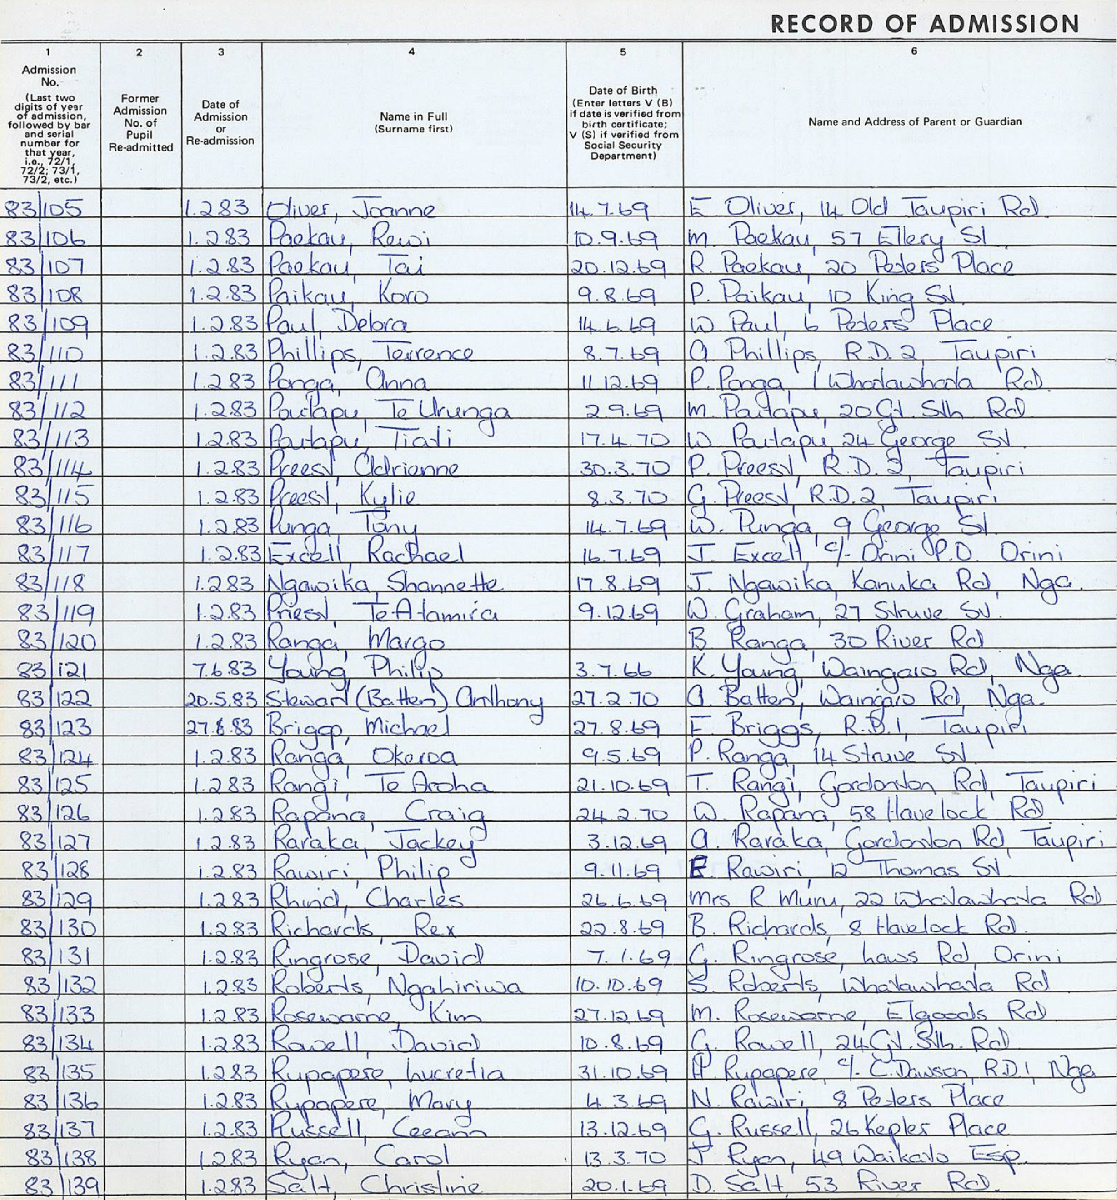 RECORD OF ADMISSION
1 2 3 4 5 6
Admission No. (Last two digits of year of admission, followed by bar and serial number for that year, i.e., 72/1, 72/2; 73/1, 73/2, etc.)
Former Admission No. of Pupil Re-admitted
Date of Admission or Re-admission
Name in Full (Surname first)
Date of Birth (Enter letters V (B) if date is verified from birth certificate; V (S) if verified from Social Security Department)
Name and Address of Parent or Guardian
83/105 1.2.83 Oliver, Joanne 14.7.69 E Oliver, 14 Old Taupiri Rd.
83/106 1.2.83 Paekau, Rewi 10.9.69 M. Paekau, 57 Ellery St
83/107 1.2.83 Paekau, Tai 20.12.69 R. Paekau, 20 Peters Place
83/108 1.2.83 Paikau, Koro 9.8.69 P. Paikau, 10 King St.
83/109 1.2.83 Paul, Debra 14.6.69 W. Paul, 6 Peters Place
83/110 1.2.83 Phillips, Terrence 8.7.69 A Phillips, R.D.2, Taupiri
83/111 1.2.83 Ponga, Anna 11.12.69 P. Ponga, 1 Whatawhata Rd.
83/112 1.2.83 Poutapu, Te Urunga 2.9.69 M. Poutapu, 20 Gt. Sth Rd
83/113 1.2.83 Poutapu, Tiati 17.4.70 W Poutapu, 24 George St.
83/114 1.2.83 Preest, Adrienne 30.3.70 P. Preest, R.D. 2, Taupiri
83/115 1.2.83 Preest, Kylie 8.3.70 G. Preest, R.D.2, Taupiri
83/116 1.2.83 Punga, Tony 14.7.69 W. Punga, 9 George St
83/117 1.2.83 Excell, Rachael 16.7.69 J. Excell, c/- Orini P.O. Orini
83/118 1.2.83 Ngawika, Shannette 17.8.69 J. Ngawika, Kanuka Rd, Nga.
83/119 1.2.83 Priest, Te Atamira 9.12.69 W. Graham, 27 Struve St.
83/120 1.2.83 Ranga, Margo B Ranga, 30 River Rd
83/121 7.6.83 Young, Philip 3.7.66 K. Young, Waingaro Rd, Nga.
83/122 20.5.83 Stewart (Batten) Anthony 27.2.70 A Batten, Waingaro Rd, Nga.
83/123 27.6.83 Briggs, Michael 27.8.69 E. Briggs, R.D.1, Taupiri
83/124 1.2.83 Ranga, Okeroa 9.5.69 P. Ranga, 14 Struve St.
83/125 1.2.83 Rangi, Te Aroha 21.10.69 T. Rangi, Gordonton Rd, Taupiri
83/126 1.2.83 Rapana, Craig 24.2.70 W. Rapana, 58 Havelock Rd
83/127 1.2.83 Raraka, Jackey 3.12.69 A. Raraka, Gordonton Rd, Taupiri
83/128 1.2.83 Rawiri, Philip 9.11.69 Rawiri, 12 Thomas St
83/129 1.2.83 Rhind, Charles 26.6.69 Mrs R Muru, 22 Whatawhata Rd
83/130 1.2.83 Richards, Rex 22.8.69 B. Richards, 8 Havelock Rd.
83/131 1.2.83 Ringrose, David 7.1.69 G. Ringrose, Laws Rd, Orini
83/132 1.2.83 Roberts, Ngahiriwa 10.10.69 S. Roberts, Whatawhata Rd
83/133 1.2.83 Rosewarne, Kim 27.12.69 M. Rosewarne, Elgoods Rd
83/134 1.2.83 Rowell, David 10.8.69 G. Rowell, 24 Gt. Sth. Rd
83/135 1.2.83 Rupapere, Lucretia 31.10.69 Rupapere, c/- C. Dawson, R.D.1, Nga
83/136 1.2.83 Rupapere, Mary 4.3.69 N. Rawiri, 8 Peters Place
83/137 1.2.83 Russell, Leeann 13.12.69 G. Russell, 26 Kepler Place
83/138 1.2.83 Ryan, Carol 13.3.70 J Ryan, 49 Waikato Esp.
83/139 1.2.83 Salt, Christine 20.1.69 D. Salt, 53 River Rd.